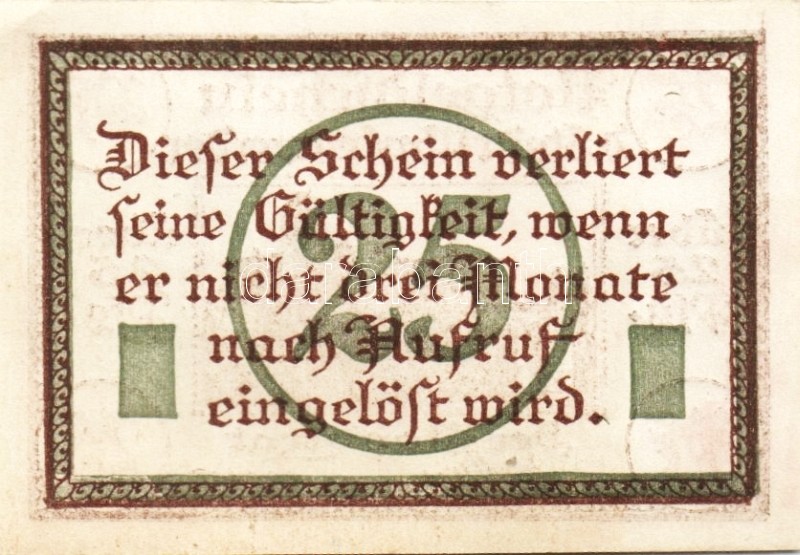 Dieser Schein verliert
seine Gültigkeit, wenn
er nicht drei Monate
nach Aufruf
eingelöst wird.
25
darabanth